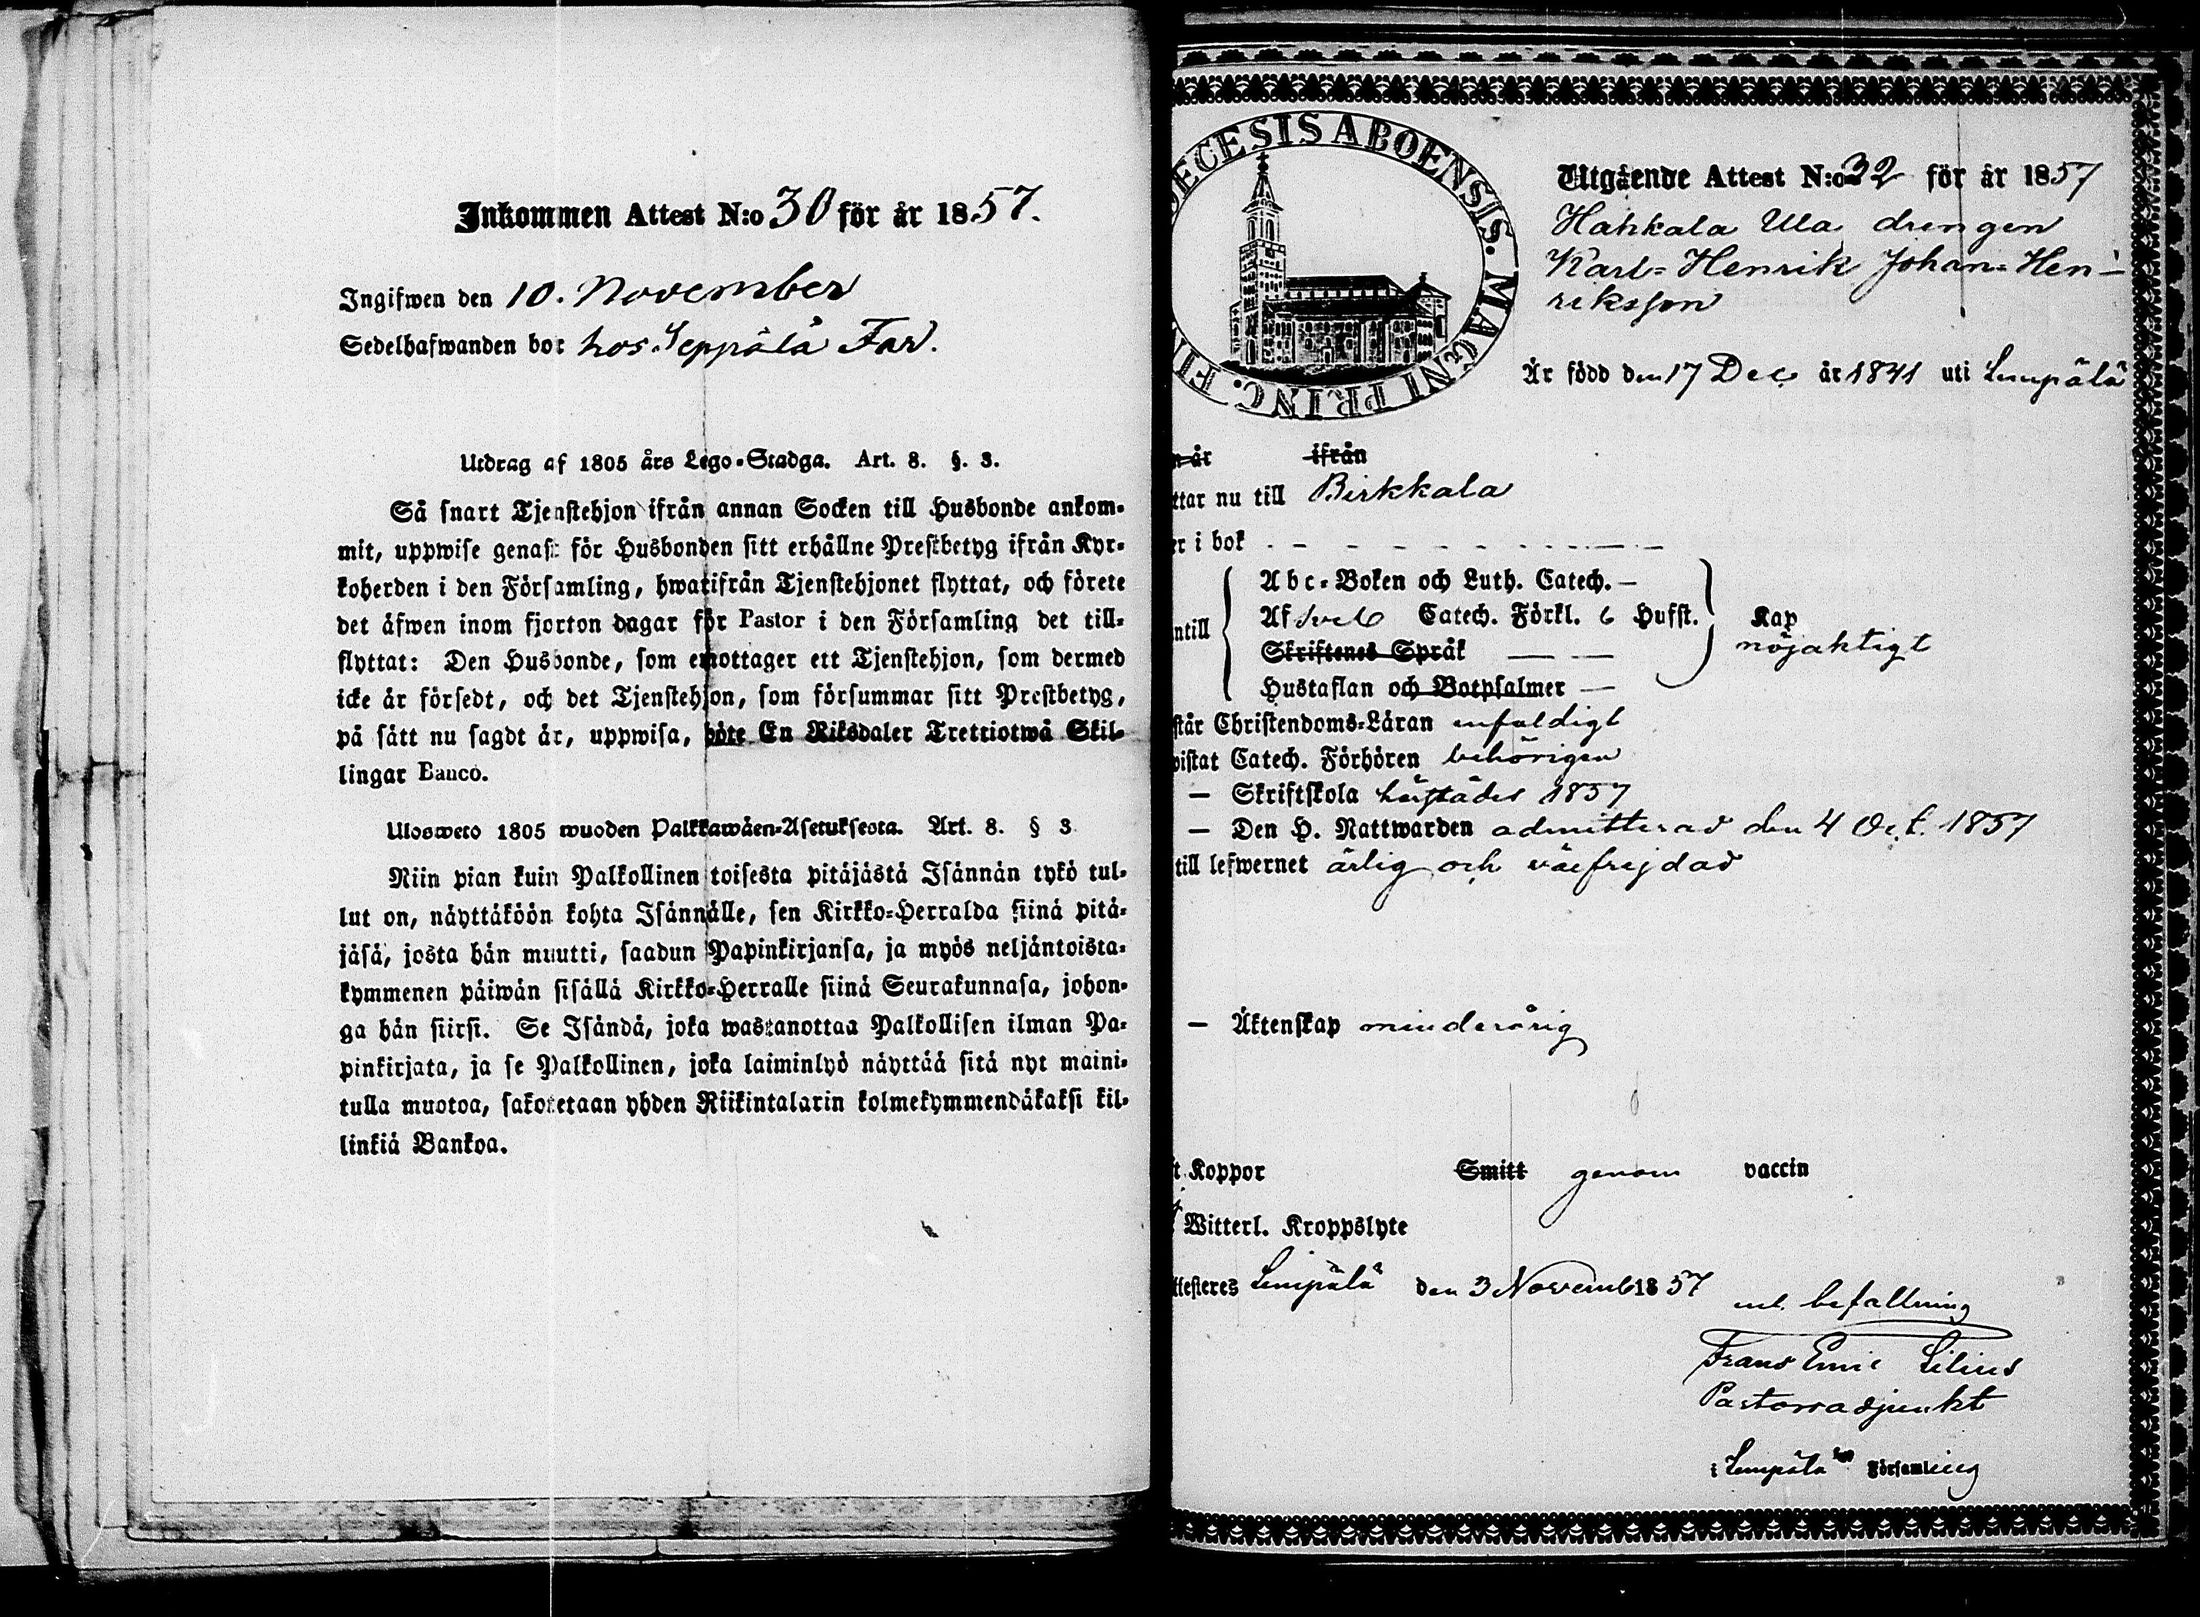 Inkommen Attest N:o 30 för år 1857.
Ingifwen den 10. November
Sedelhafwanden bor hos Seppälä Far.
Utdrag af 1805 års Lego-Stadga. Art. 8. §. 3.
Så snart Tjenstehjon ifrån annan Socken till Husbonde ankom-
mit, uppwise genast för Husbonden sitt erhållne Prestbetyg ifrån Kyr-
koherden i den Församling, hwarifrån Tjenstehjonet flyttat, och förete
det äfwen inom fjorton dagar för Pastor i den Församling det till-
flyttat: Den Husbonde, som emottager ett Tjenstehjon, som dermed
icke är försedt, och det Tjenstehjon, som försummar sitt Prestbetyg,
på sätt nu sagdt är, uppwisa, böte En Riksdaler Trettiotwå Skil-
lingar Banco.
Ulosweto 1805 wuoden Palkkawäen-Asetuksesta. Art. 8. § 3
Niin pian kuin Palkollinen toisesta pitäjästä Isännän tykö tul-
lut on, näyttäköön kohta Isännälle, sen Kirkko-Herralda siinä pitä-
jäsä, josta hän muutti, saadun Papinkirjansa, ja myös neljäntoista-
kymmenen päiwän sisällä Kirkko-Herralle siinä Seurakunnasa, johon-
ga hän siirsi. Se Isändä, joka wastanottaa Palkollisen ilman Pa-
pinkirjata, ja se Palkollinen, joka laiminlyö näyttää sitä nyt maini-
tulla muotoa, sakotetaan yhden Riikintalarin kolmekymmendäkaksi kil-
linkiä Bankoa.
ECESIS ABOENSIS. MAGNI PRINC. FI
Utgående Attest N:o 32 för år 1857
Hahkala Ula drengen
Karl=Henrik Johan=Hen-
riksson
Är född den 17 Dec. år 1841 uti Lempälä
n år ifrån
ttar nu till Birkkala
er i bok
ntill
Abc-Boken och Luth. Catech.
Af Sveb Catech. Förkl. 6 Hufst.
Skriftenes Språk
Hustaflan och Botpsalmer
Kap
nöjaktigt
står Christendoms-Läran enfaldigt
vistat Catech. Förhören behörigen
— Skriftskola härstädes 1857
— Den H. Nattwarden admitterad den 4 Oct. 1857
till lefwernet ärlig och väefrejdad
— Äktenskap minderårig
t Koppor Smitt genom vaccin
Witterl. Kroppslyte
ttesteres Lempälä den 3 Novemb 1857
enl. befallning
Frans Emil Lilius
Pastorsadjunkt
i Lempälä Församling